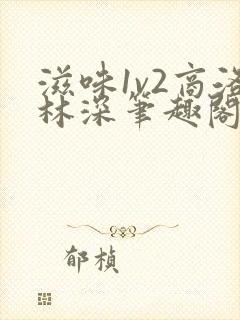 滋味1v2高洛
林深笔趣阁
郁桢